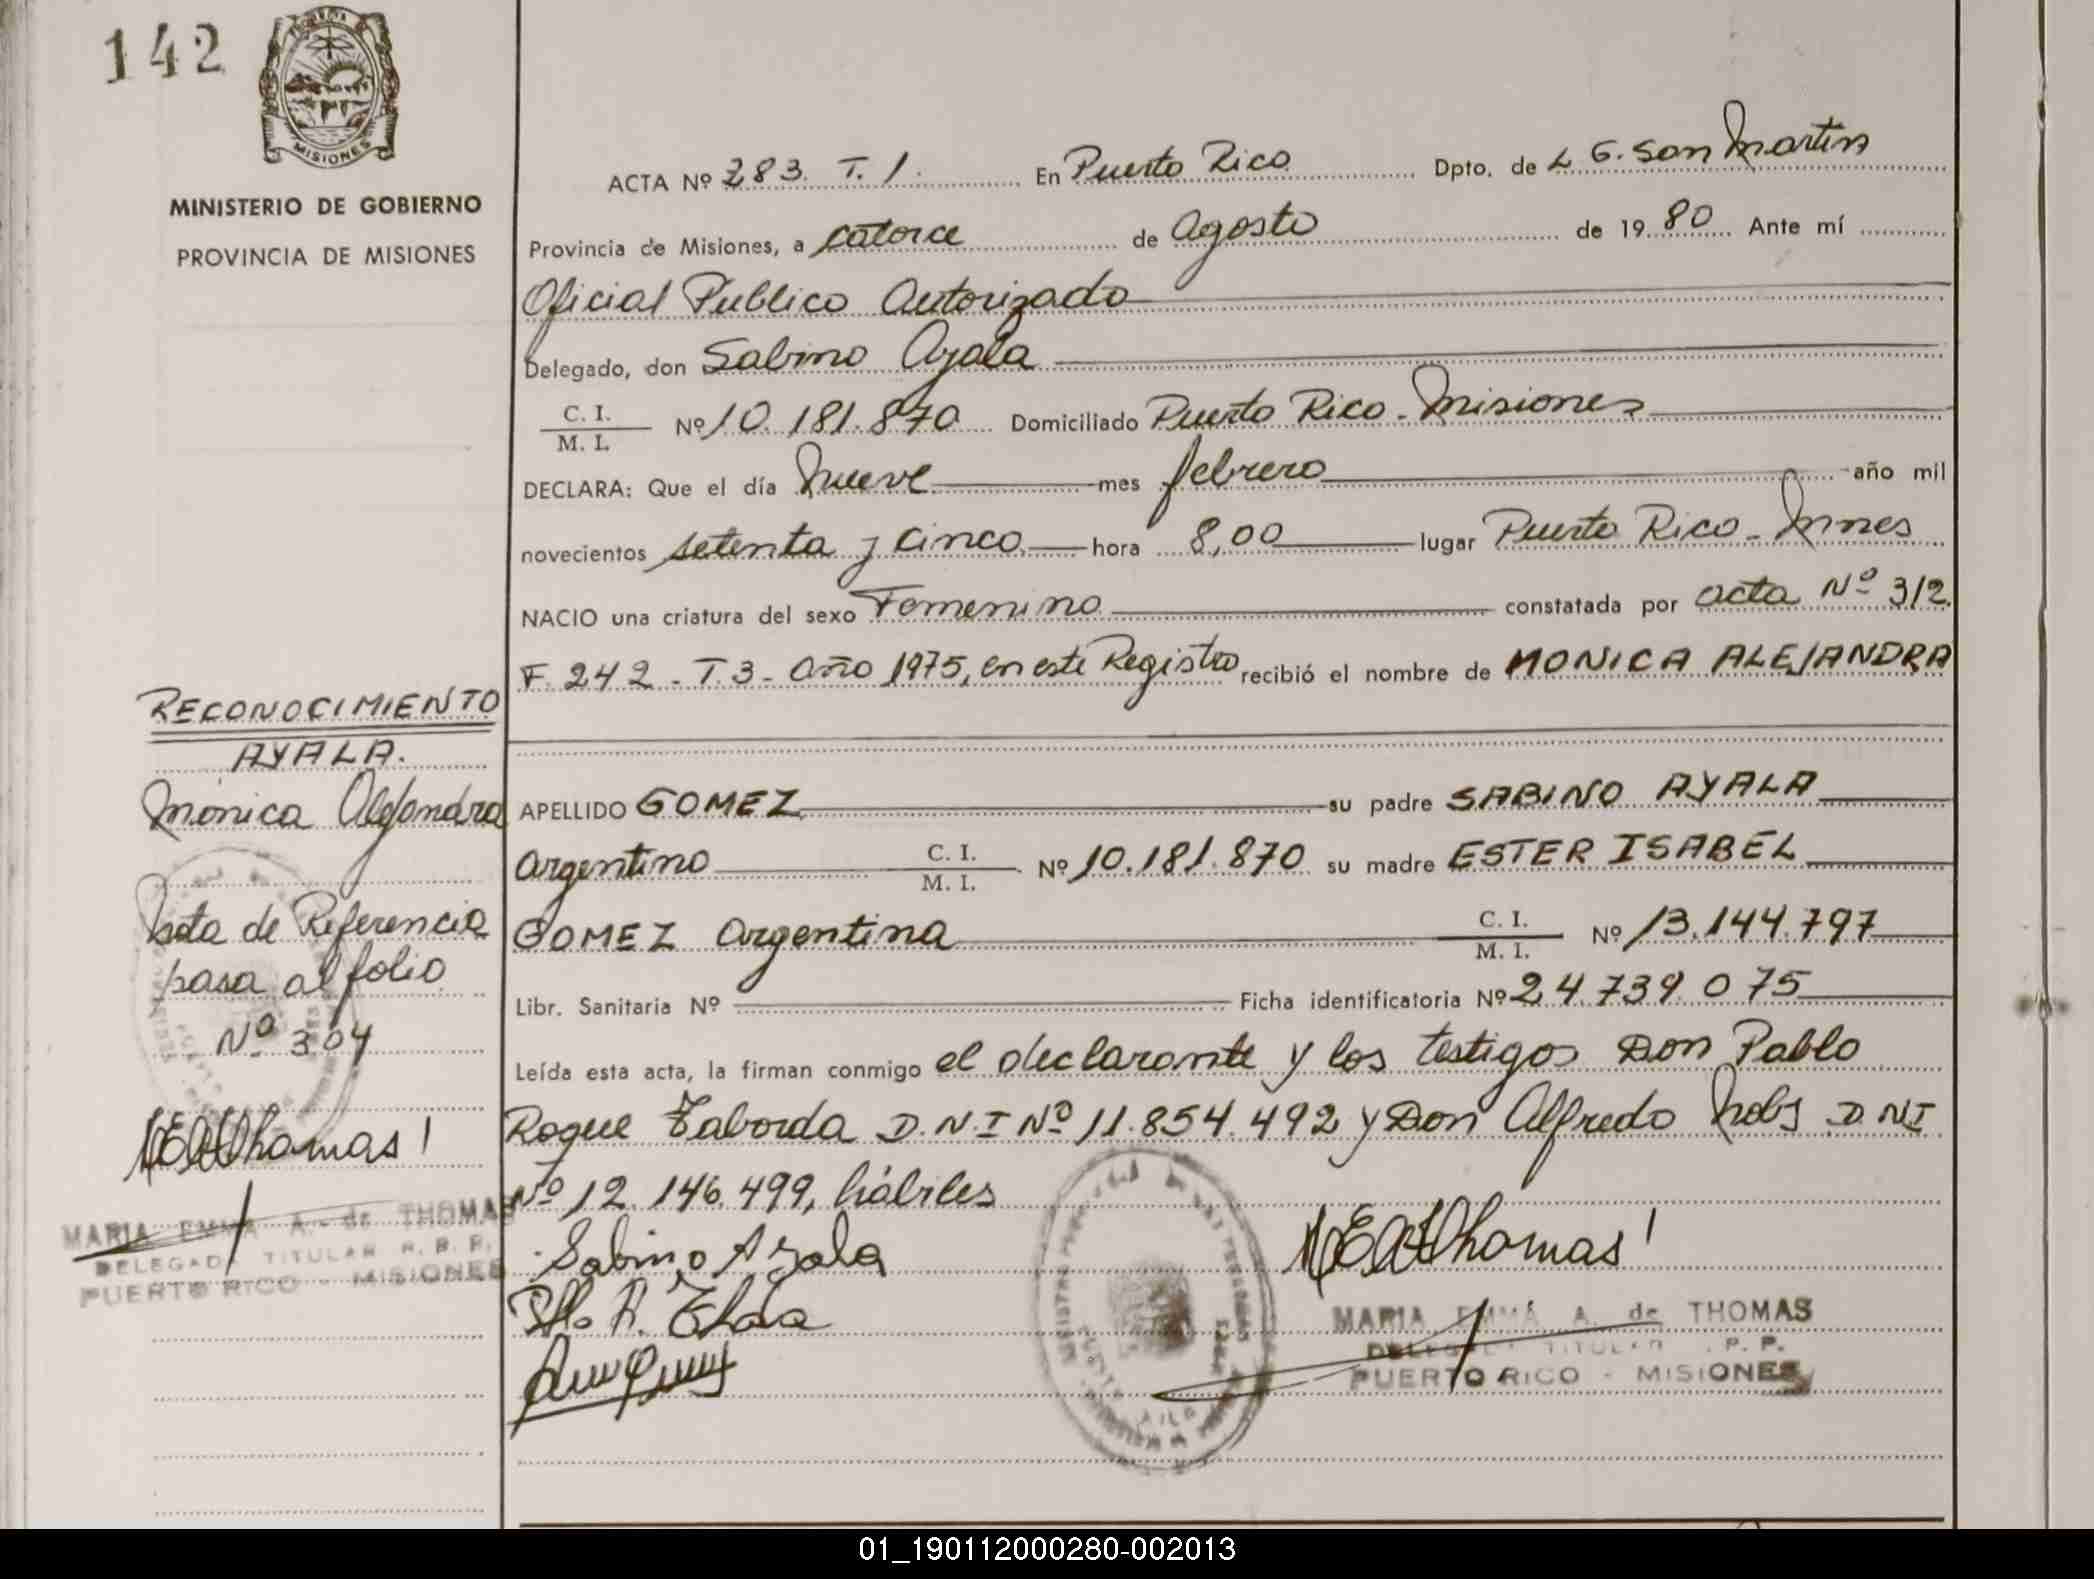 142
MISIONES
MINISTERIO DE GOBIERNO
PROVINCIA DE MISIONES
RECONOCIMIENTO
AYALA.
Mónica Alejandra
Nota de Referencia
pasa al folio
Nº 304
MARIA EMMA A. de THOMAS
DELEGADA TITULAR R. P. P.
PUERTO RICO - MISIONES
ACTA Nº 283. T. 1. En Puerto Rico Dpto. de L G. San Martin
Provincia de Misiones, a catorce de Agosto de 19 80 Ante mí
Oficial Publico Autorizado
Delegado, don Sabino Ayala
C. I. / M. I. Nº 10.181.870 Domiciliado Puerto Rico - Misiones
DECLARA: Que el día Nueve mes febrero año mil
novecientos setenta y cinco hora 8,00 lugar Puerto Rico - Mnes
NACIO una criatura del sexo Femenino constatada por acta Nº 312
F. 242 - T. 3 - año 1975, en este Registro recibió el nombre de MONICA ALEJANDRA
APELLIDO GOMEZ su padre SABINO AYALA
Argentino C. I. / M. I. Nº 10.181.870 su madre ESTER ISABEL
GOMEZ Argentina C. I. / M. I. Nº 13.144.797
Libr. Sanitaria Nº Ficha identificatoria Nº 24.739.075
Leída esta acta, la firman conmigo el declarante y los testigos Don Pablo
Roque Taborda D.N.I Nº 11.854.492 y Don Alfredo D NI
Nº 12.146.499, hábiles
Sabino Ayala
MARIA EMMA A. de THOMAS
DELEGADA TITULAR R. P. P.
PUERTO RICO - MISIONES
01_190112000280-002013